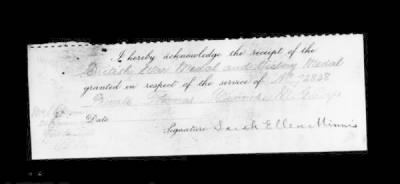 I hereby acknowledge the receipt of the
British War Medal and Victory Medal
granted in respect of the service of No 72858
Private Thomas
Date
Signature Sarah Ellen Minnis